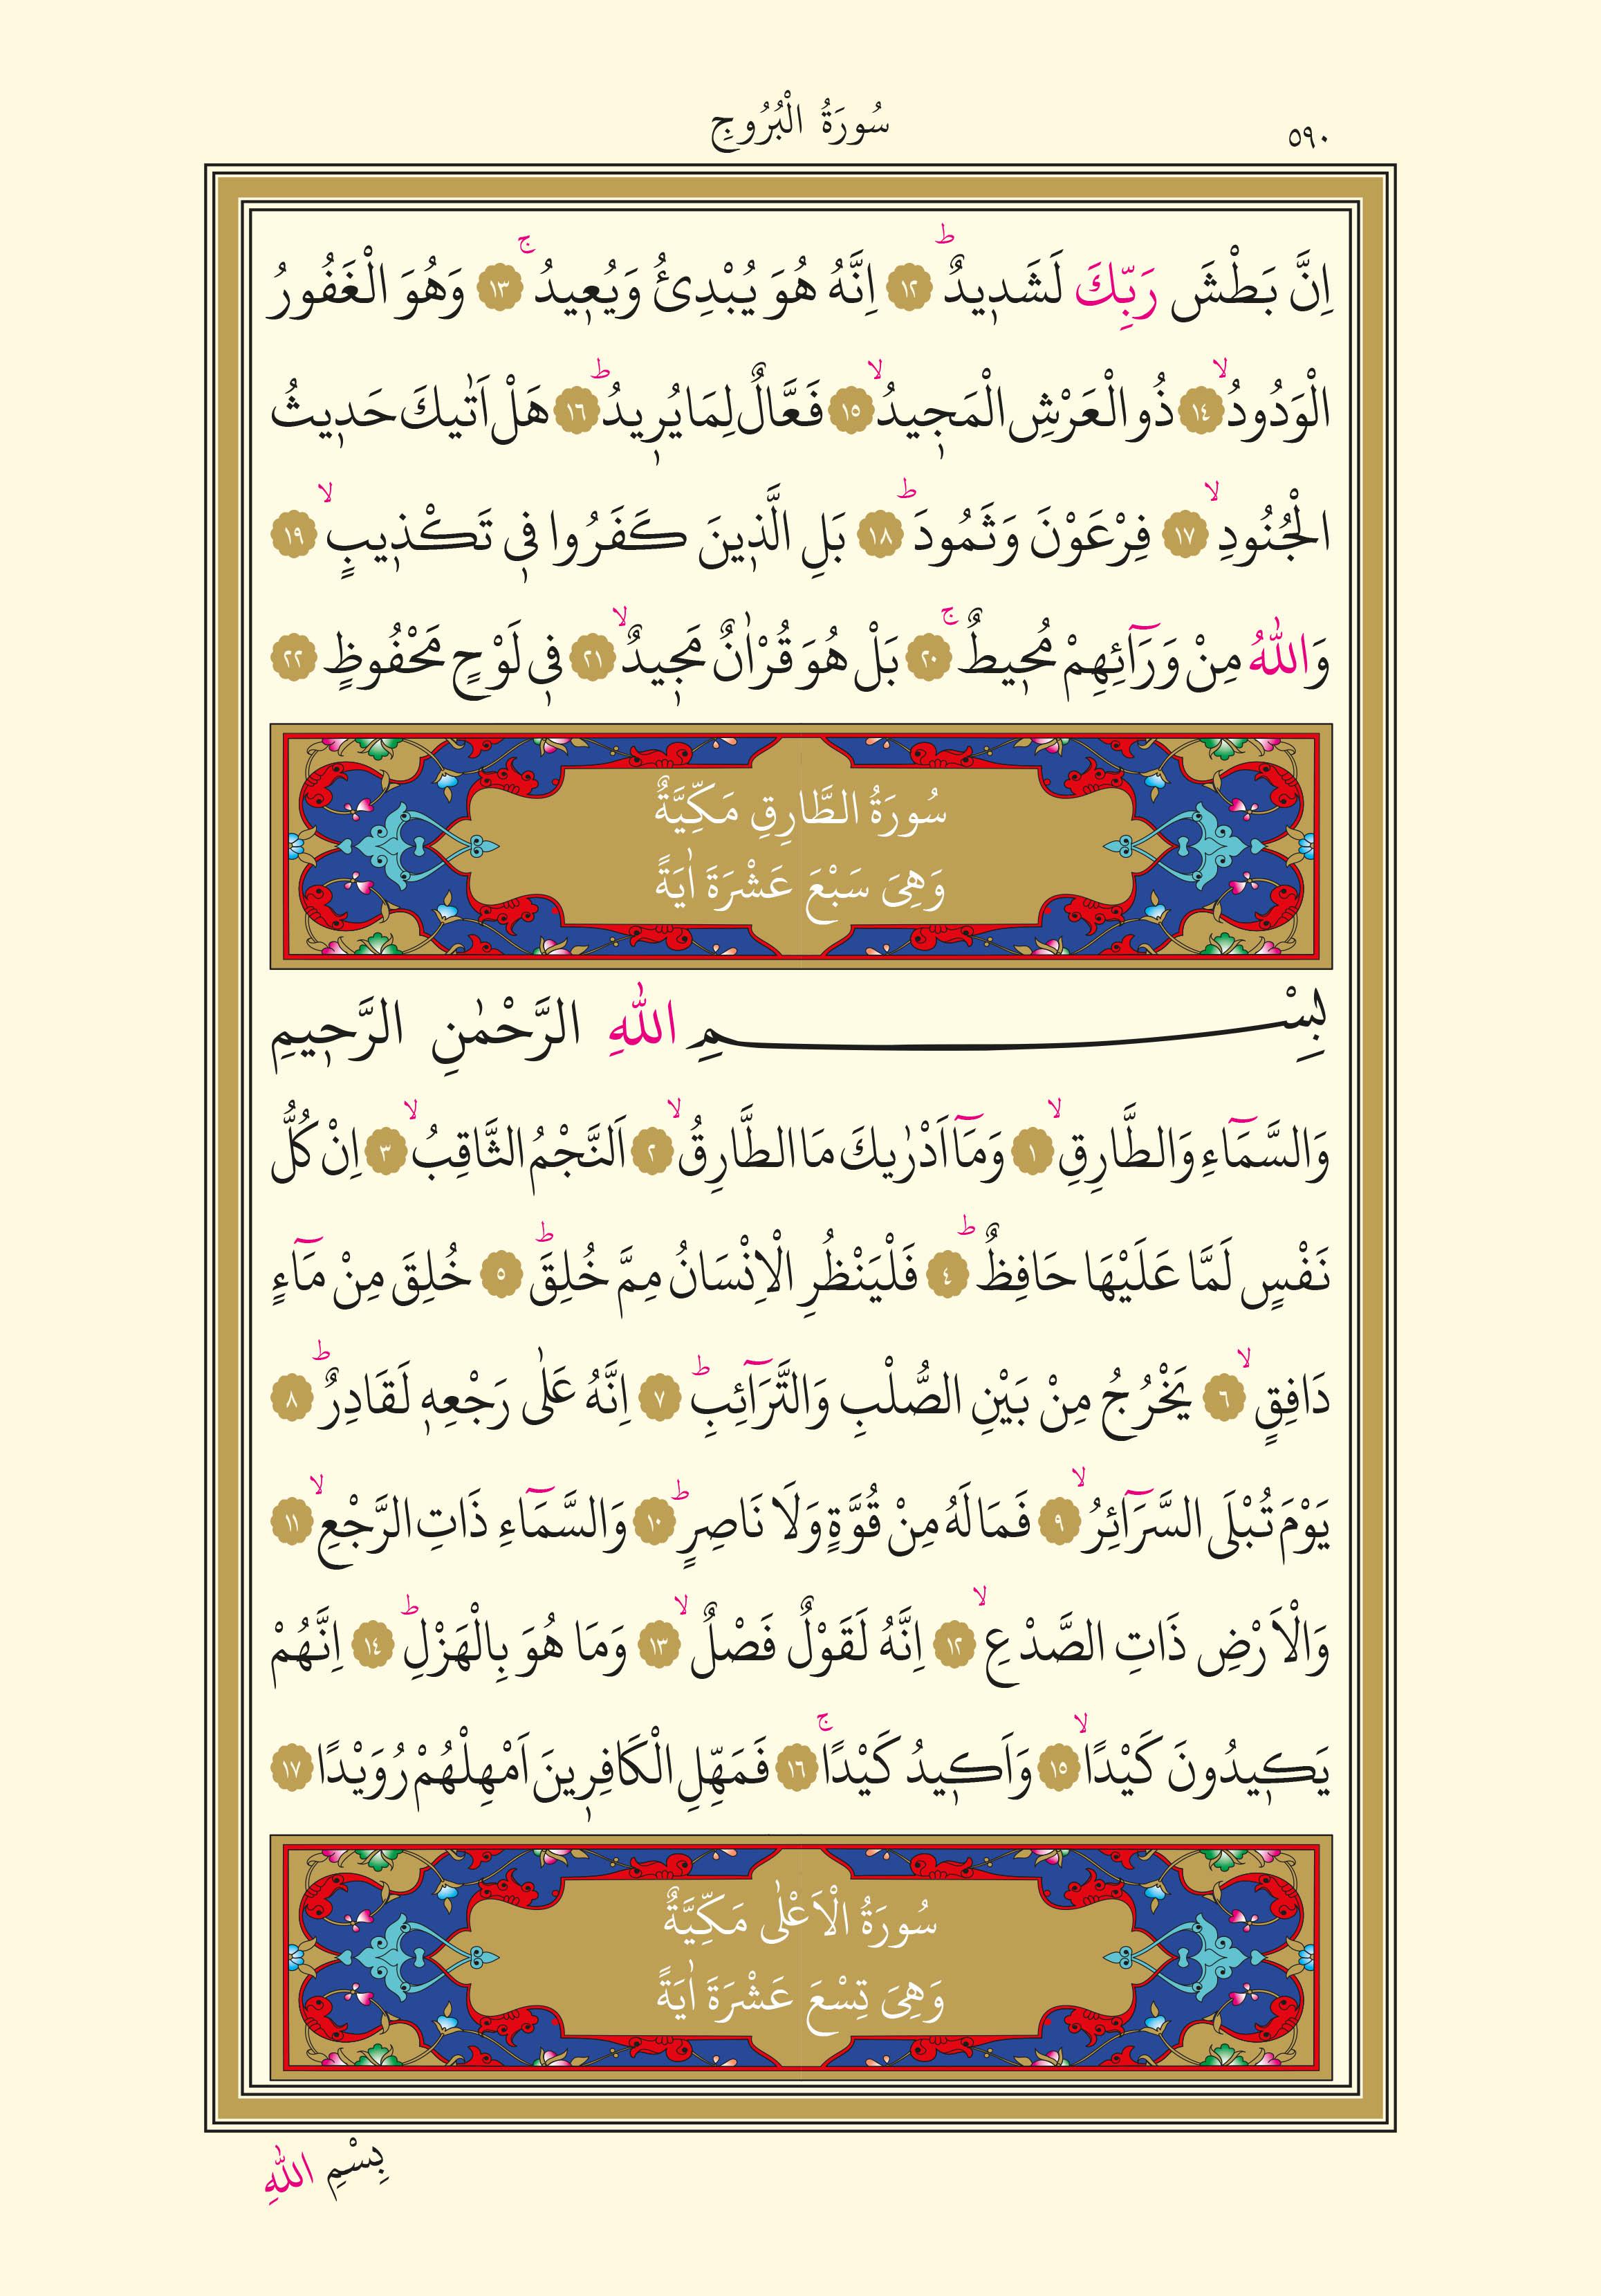 ٥٩٠
سُورَةُ الْبُرُوجِ
اِنَّ بَطْشَ رَبِّكَ لَشَد۪يدٌۜ ﴿١٢﴾ اِنَّهُ هُوَ يُبْدِئُ وَيُع۪يدُۚ ﴿١٣﴾ وَهُوَ الْغَفُورُ
الْوَدُودُۙ ﴿١٤﴾ ذُو الْعَرْشِ الْمَج۪يدُۙ ﴿١٥﴾ فَعَّالٌ لِمَا يُر۪يدُۜ ﴿١٦﴾ هَلْ اَتٰيكَ حَد۪يثُ
الْجُنُودِۙ ﴿١٧﴾ فِرْعَوْنَ وَثَمُودَۜ ﴿١٨﴾ بَلِ الَّذ۪ينَ كَفَرُوا ف۪ي تَكْذ۪يبٍۙ ﴿١٩﴾
وَاللّٰهُ مِنْ وَرَٓائِهِمْ مُح۪يطٌۚ ﴿٢٠﴾ بَلْ هُوَ قُرْاٰنٌ مَج۪يدٌۙ ﴿٢١﴾ ف۪ي لَوْحٍ مَحْفُوظٍ ﴿٢٢﴾
سُورَةُ الطَّارِقِ مَكِّيَّةٌ
وَهِيَ سَبْعَ عَشْرَةَ اٰيَةً
بِسْمِ اللّٰهِ الرَّحْمٰنِ الرَّح۪يمِ
وَالسَّمَٓاءِ وَالطَّارِقِۙ ﴿١﴾ وَمَٓا اَدْرٰيكَ مَا الطَّارِقُۙ ﴿٢﴾ اَلنَّجْمُ الثَّاقِبُۙ ﴿٣﴾ اِنْ كُلُّ
نَفْسٍ لَمَّا عَلَيْهَا حَافِظٌۜ ﴿٤﴾ فَلْيَنْظُرِ الْاِنْسَانُ مِمَّ خُلِقَۜ ﴿٥﴾ خُلِقَ مِنْ مَٓاءٍ
دَافِقٍۙ ﴿٦﴾ يَخْرُجُ مِنْ بَيْنِ الصُّلْبِ وَالتَّرَٓائِبِۜ ﴿٧﴾ اِنَّهُ عَلٰى رَجْعِه۪ لَقَادِرٌۜ ﴿٨﴾
يَوْمَ تُبْلَى السَّرَٓائِرُۙ ﴿٩﴾ فَمَا لَهُ مِنْ قُوَّةٍ وَلَا نَاصِرٍۜ ﴿١٠﴾ وَالسَّمَٓاءِ ذَاتِ الرَّجْعِۙ ﴿١١﴾
وَالْاَرْضِ ذَاتِ الصَّدْعِۙ ﴿١٢﴾ اِنَّهُ لَقَوْلٌ فَصْلٌۙ ﴿١٣﴾ وَمَا هُوَ بِالْهَزْلِۜ ﴿١٤﴾ اِنَّهُمْ
يَك۪يدُونَ كَيْدًاۙ ﴿١٥﴾ وَاَك۪يدُ كَيْدًاۚ ﴿١٦﴾ فَمَهِّلِ الْكَافِر۪ينَ اَمْهِلْهُمْ رُوَيْدًا ﴿١٧﴾
سُورَةُ الْاَعْلٰى مَكِّيَّةٌ
وَهِيَ تِسْعَ عَشْرَةَ اٰيَةً
بِسْمِ اللّٰهِ